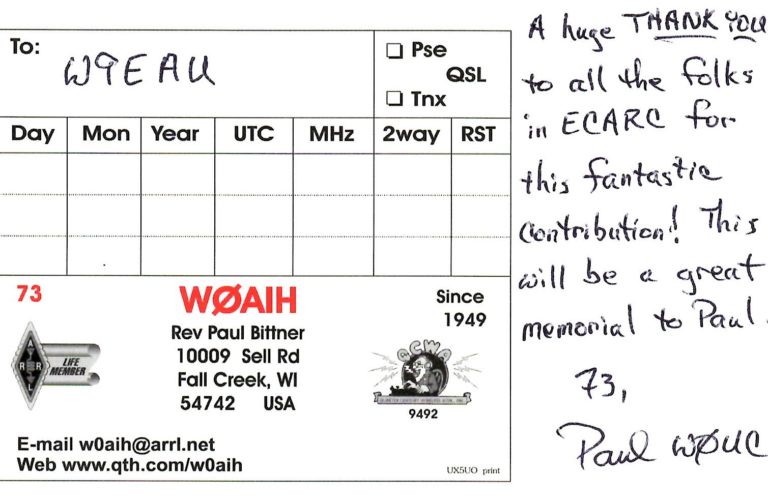 To: W9EAU
☐ Pse
QSL
☐ Tnx
Day Mon Year UTC MHz 2way RST
73
WØAIH
Since
1949
Rev Paul Bittner
10009 Sell Rd
Fall Creek, WI
54742 USA
ARRL
LIFE
MEMBER
QCWA
9492
E-mail w0aih@arrl.net
Web www.qth.com/w0aih
UX5UO print
A huge THANK YOU
to all the folks
in ECARC for
this fantastic
contribution! This
will be a great
memorial to Paul.
73,
Paul WØUC